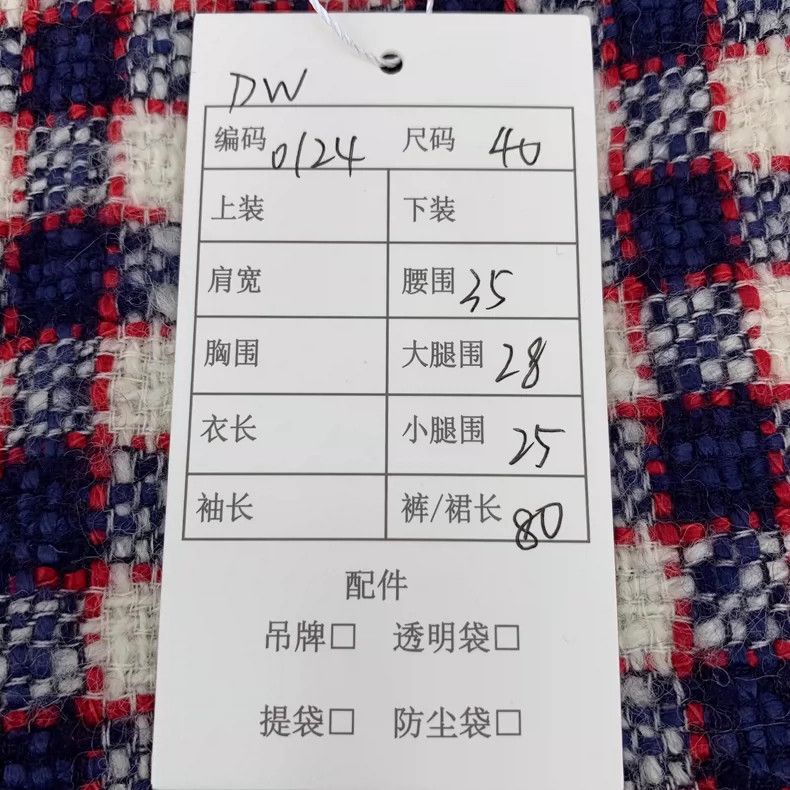 DW
编码 0124 尺码 40
上装 下装
肩宽 腰围 35
胸围 大腿围 28
衣长 小腿围 25
袖长 裤/裙长 80
配件
吊牌□ 透明袋□
提袋□ 防尘袋□